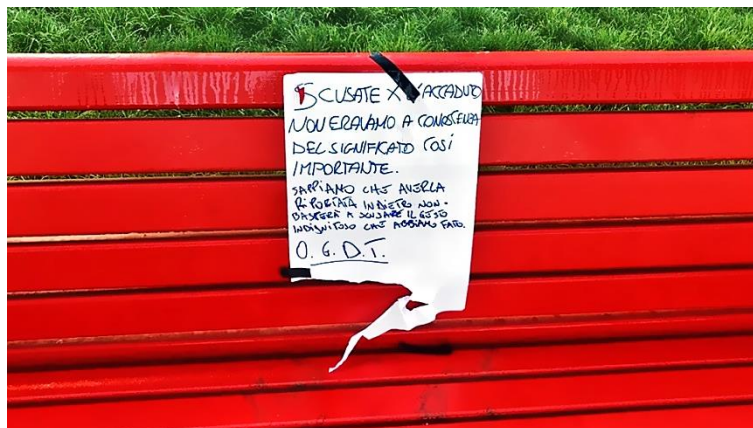 SCUSATE X L'ACCADUTO
NON ERAVAMO A CONOSCENZA
DEL SIGNIFICATO COSI
IMPORTANTE.
SAPPIAMO CHE AVERLA
RIPORTATA INDIETRO NON
BASTERÀ A SCUSARE IL GESTO
INDIGNITOSO CHE ABBIAMO FATO.
O. G. D. T.